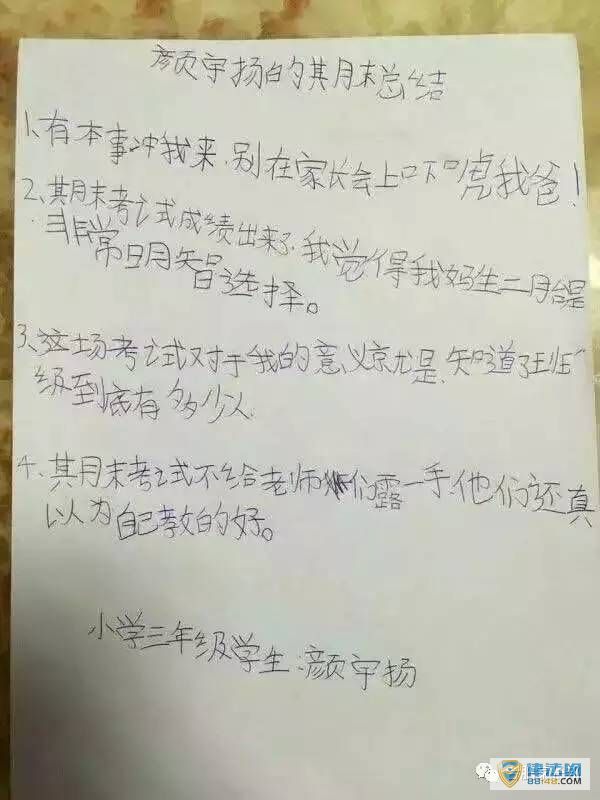 颜宇扬的期末总结
1、有本事冲我来,别在家长会上吓唬我爸!
2、期末考试成绩出来了,我觉得我妈生二胎是
非常明智选择。
3、这场考试对于我的意义就是,知道了班
级到底有多少人
4、期末考试不给老师们露一手,他们还真
以为自己教的好。
小学三年级学生:颜宇扬
律法网
88148.com